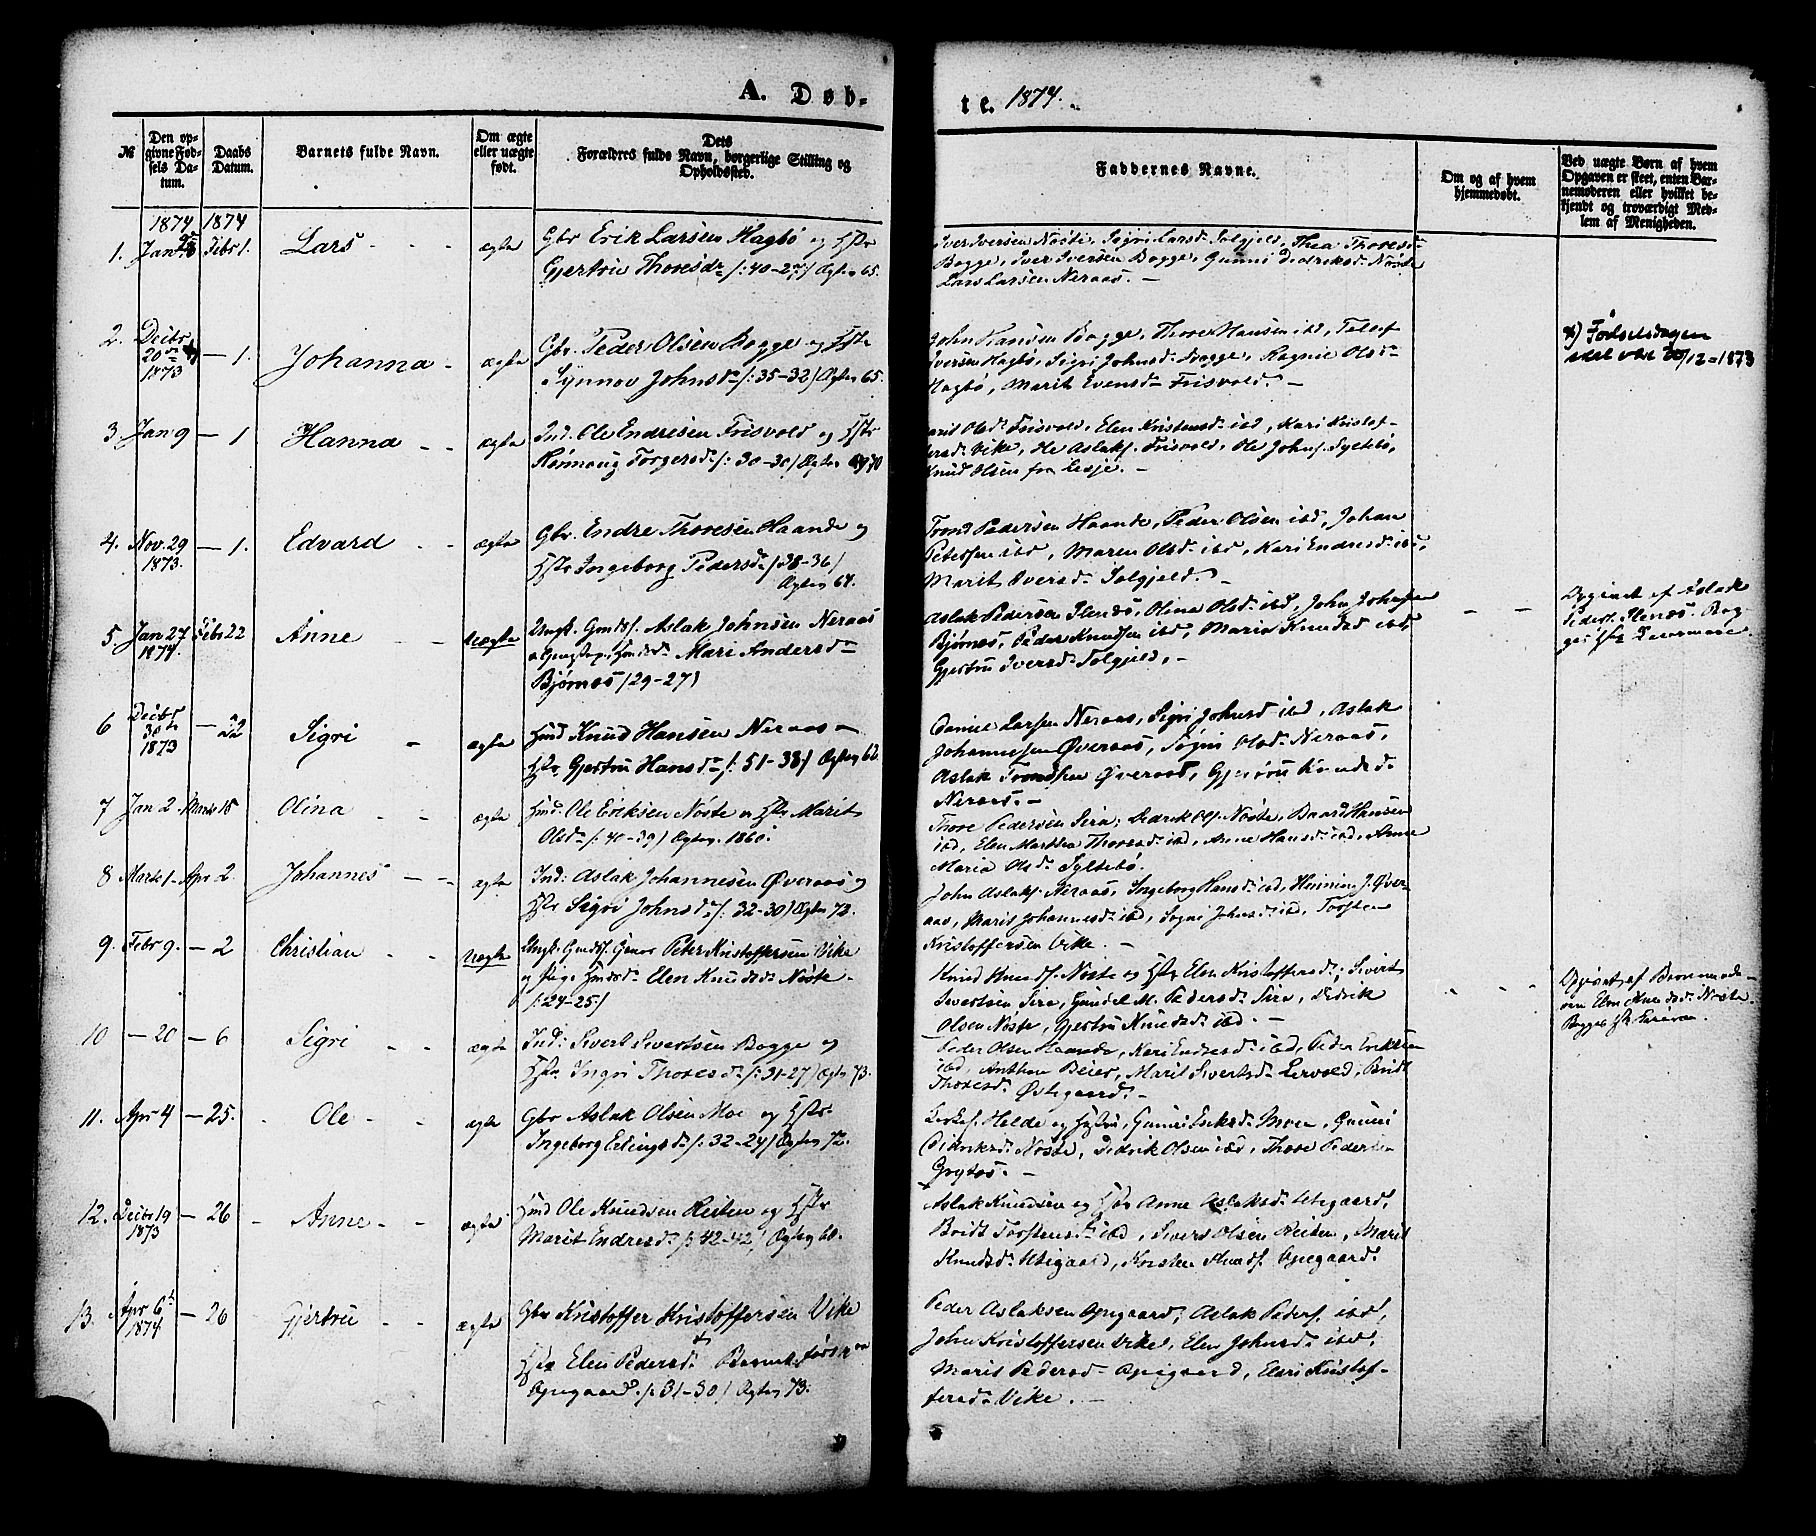 A. Døb-
te. 1874.
№
Den op-
givne Fød-
sels Da-
tum.
Daabs
Datum.
Barnets fulde Navn.
Om ægte
eller uægte
født.
Dets
Forældres fulde Navn, borgerlige Stilling og
Opholdssted.
Faddernes Navne.
Om og af hvem
hjemmedøbt.
Ved uægte Børn af hvem
Opgaven er skeet, enten Bar-
nemoderen eller hvilket be-
kjendt og troværdigt Med-
lem af Menigheden.
1874 1874
1. Jan Febr 1. Lars - - - ægte
Gbr Erik Larsen Hagbø og Hstr
Gjertru Thoresdr /: 40-27/ Ægtev 65.
Iver Iversen Nøste, Sigri Larsd. Solgjeld, Thea Thoresd.
Bogge, Iver Iversen Bogge, Gunni Didriksd. Nøste
Lars Larsen Neraas. -
2. Decbr
20de
1873
- 1. Johanna - ægte
Gbr. Peder Olsen Bogge og Hstr
Synnøv Johnsdr /: 35-32/ Ægtev 65.
John Hansen Bogge, Thore Hansen ibd,
Iversen Hagbø, Sigri Johnsd. Bogge, Ragnie Olsdr
Hagbø, Marit Evensdr Frisvold. -
*) Fødselsdagen
skal være 20/12-1873
3 Jan 9 - 1 Hanna - - ægte
Ind. Ole Endresen Frisvold og Hstr
Rønnaug Torgersdr /: 30-30/ Ægtev 70
Marit Olsd. Frisvold, Elen Kristensd. ibd, Kari Kristof-
fersd. Vike, Ole Aslaks. Frisvold, Ole Johns. Syltebø,
Knud Olsen fra Lesje. -
4. Nov. 29
1873.
- 1. Edvard - - ægte
Gbr. Endre Thoresen Haande og
Hstr Ingeborg Pedersdr /38-36/
Ægtev 64.
Trond Pedersen Haande, Peder Olsen ibd, Johan
Petersen ibd, Maren Olsd. ibd, Kari Endresd. ibd,
Marit Iversd. Solgjeld. -
5. Jan 27
1874.
Febr 22 Anne - - uægte
Ungk. Gmds. Aslak Johnsen Neraas
Mari Andersdr
Bjørnes /29-27/
Aslak Pedersen Ilenæs, Olina Olsd. ibd, John Johnsen
Bjørnes, Peder Knudsen ibd, Marie Knudsd ibd,
Gjertru Iversd. Solgjeld, -
- - Opgivet af Aslak
Peders. Ilenæs. Bog-
6 Decbr
30te
1873
- 22 Sigri - ægte
Hmd Knud Hansen Neraas -
Hstr Gjertru Hansdr /: 51-38/ Ægtev 62.
Daniel Larsen Neraas, Sigri Johnsd ibd, Aslak
Johannesen Øveraas, Sigri Olsd. Neraas,
Aslak Trondsen Øveraas, Gjertru Knudsd.
Neraas. -
7 Jan 2. Marts 15 Olina - - ægte
Hmd. Ole Eriksen Nøste og Hstr Marit
Olsdr /: 40-39/ Ægtev 1860.
Thore Pedersen Sira, Didrik Ols. Nøste, Baard Hansen
ibd, Elen Marthea Thoresd. ibd, Anne Hansd. ibd, Anne
Maria Olsd. Syltebø.
8 Marts 1. Apr 2. Johannes - - ægte
Ind: Aslak Johannesen Øveraas og
Hstr Sigri Johnsdr /: 32-30/ Ægtev 73.
John Aslaks. Neraas, Ingeborg Hansd. ibd, Henning J. Øver-
aas, Marit Johannesd. ibd, Sigri Johnsd. ibd, Torsten
Kristoffersen Vike. -
9. Febr 9. - 2 Christian - - uægte
Ungk. Gmds. Peter Kristoffersen Vike
og Pige Hmdsd. Elen Knudsd. Nøste.
/: 24-25/
Knud Knuds. Nøste og Hstr Elen Kristoffersd., Sivert
Sivertsen Sira, Gundel M. Pedersd. Sira, Didrik
Olsen Nøste, Gjertru Knudsd. ibd. -
Opgivet af Barnemode-
ren Elen Knudsd. Nøste.
10 - 20 - 6 Sigri - - ægte
Ind: Sivert Sivertsen Bogge og
Hstr Ingri Thoresdr /: 31-27/ Ægtev 73.
Peder Olsen Haande, Kari Endresd. ibd, Peder Eriksen
ibd, Anthon Beier, Marit Sivertsd. Lervold, Brit
Thoresd. Østigaard. -
11. Apr 4 - 25. - Ole - - ægte
Gbr Aslak Olsen Moe og Hstr.
Ingeborg Erlingsdr /: 32-24/ Ægtev 72.
Kirkes. Helde og Hustru, Gunni Eriksd. Moen, Gunni
Didriksd. Nøste, Didrik Olsen ibd, Thore Pedersen
Grytøs. -
12. Decbr 19
1873
- 26 - Anne - - ægte
Hmd Ole Knudsen Reiten og Hstr
Marit Endresdr /: 42-42/ Ægtev 60.
Aslak Knudsen og Hstr Anne Aslaksd. Utigaard,
Brit Torstensd. ibd, Sivert Olsen Reiten, Marit
Knudsd. Utigaard, Kristen Knuds. Opigaard.
13. Apr 6te
1874
- 26 - Gjertru - - ægte
Gbr Kristoffer Kristoffersen Vike
Hstr Elen Pedersd.
Opigaard /: 31-30/ Ægtev 73.
Peder Aslaksen Opigaard, Aslak Peders. ibd,
John Kristoffersen Vike, Elen Johnsd. ibd,
Marit Pedersd. Opigaard, Elen Kristof-
fersd. Vike. -